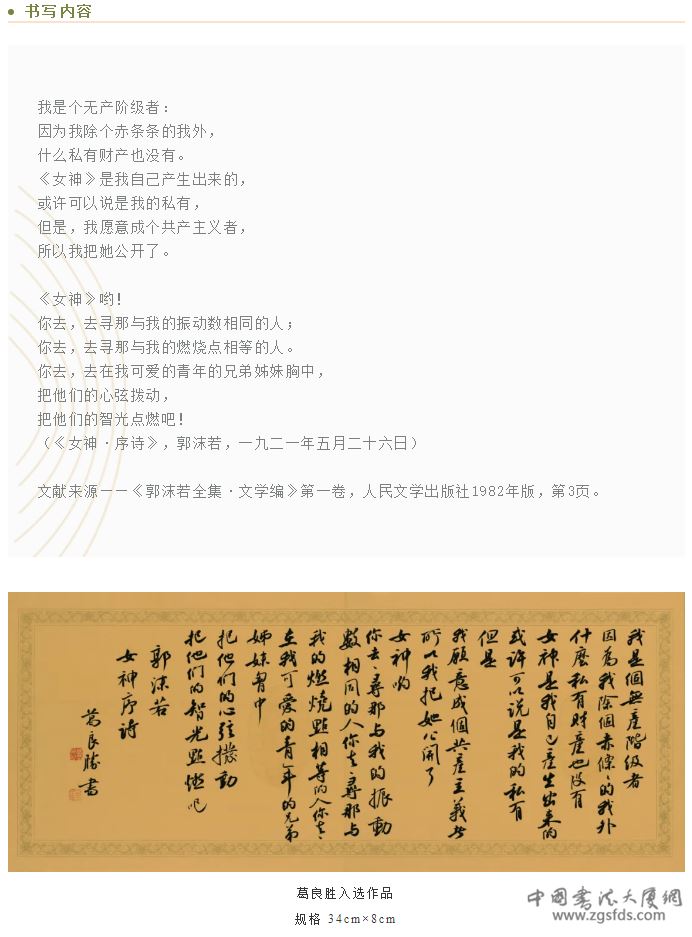 书写内容
我是个无产阶级者：
因为我除个赤条条的我外，
什么私有财产也没有。
《女神》是我自己产生出来的，
或许可以说是我的私有，
但是，我愿意成个共产主义者，
所以我把她公开了。
《女神》哟！
你去，去寻那与我的振动数相同的人；
你去，去寻那与我的燃烧点相等的人。
你去，去在我可爱的青年的兄弟姊妹胸中，
把他们的心弦拨动，
把他们的智光点燃吧！
（《女神·序诗》，郭沫若，一九二一年五月二十六日）
文献来源——《郭沫若全集·文学编》第一卷，人民文学出版社1982年版，第3页。
我是個無產階級者
因為我除個赤條々的我外
什麼私有財產也沒有
女神是我自己產生出來的
或许可以说是我的私有
但是
我願意成個共產主義者
所以我把她公開了
女神哟
你去々尋那与我的振動
數相同的人你去々尋那与
我的燃燒點相等的人你去々
在我可愛的青年的兄弟
姊妹胷中
把他们的心弦撥動
把他们的智光點燃吧
郭沫若
女神序诗
葛良勝书
葛良胜入选作品
规格 34cm×8cm
中国书法大厦網
www.zgsfds.com